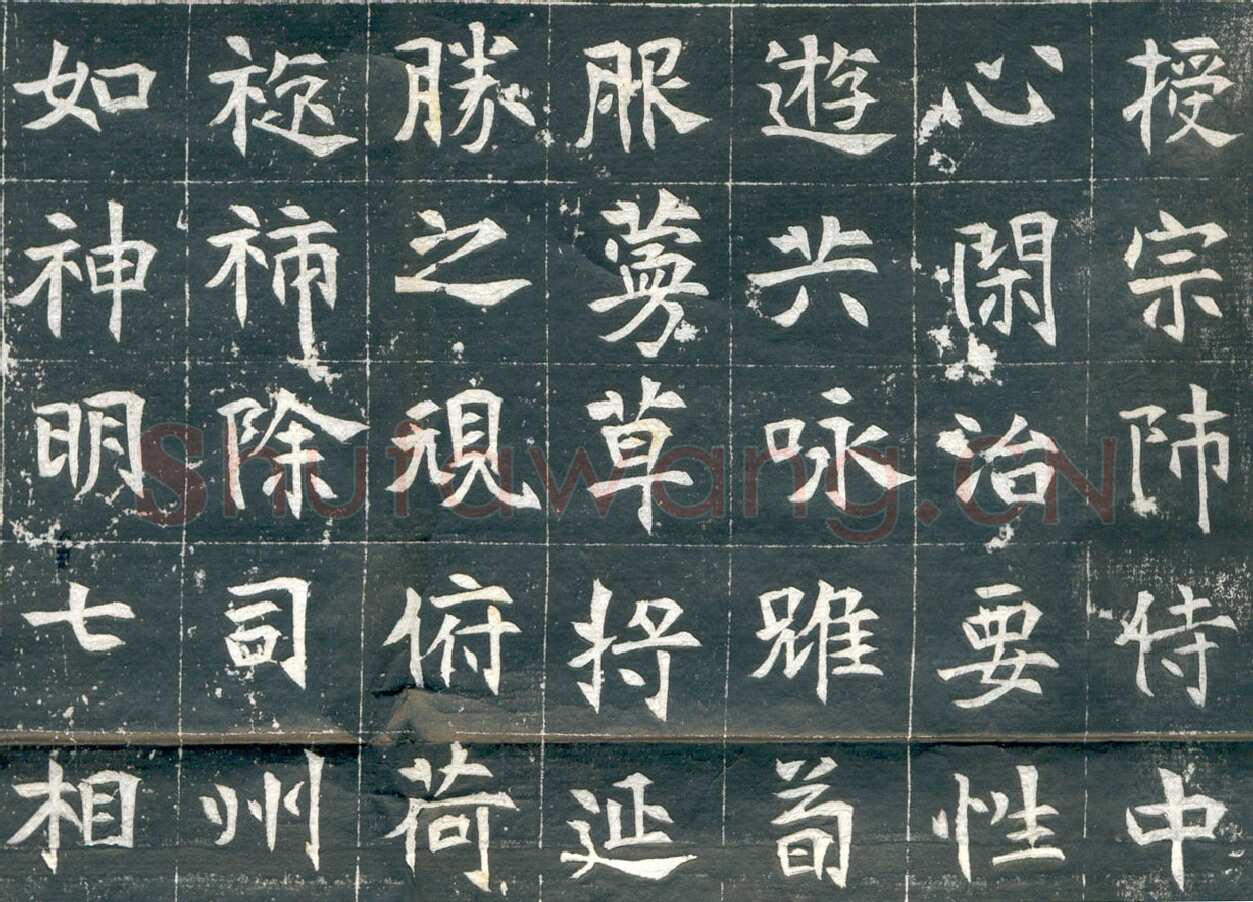 授宗師侍中
心閑治要性
遊共咏雖荀
服蔓草將延
勝之規俯荷
旋旆除司州
如神明七相
Shufawang.CN